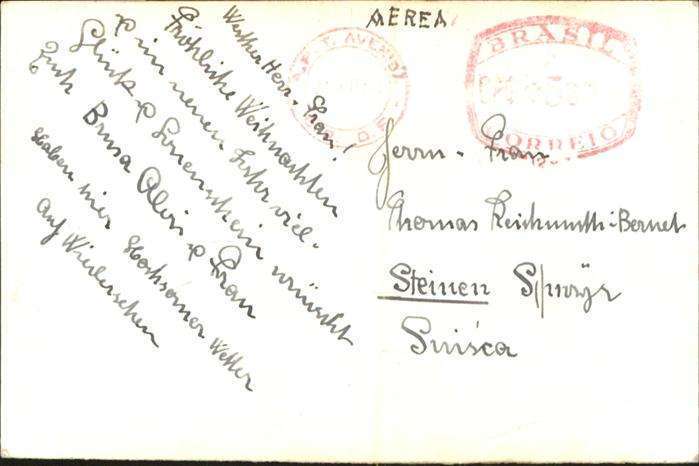 AEREA
BRASIL
CORREIO
Werther Herr u. Frau!
Fröhliche Weihnachten
u im neuen Jahr viel
Glück u Sonnenschein wünscht
Euch Bruna Alois u Frau
Haben hier Hochsomer Wetter
Auf Wiedersehen
Herrn u. Frau
Thomas Reichmuth-Bernet
Steinen Schwyz
Suisca